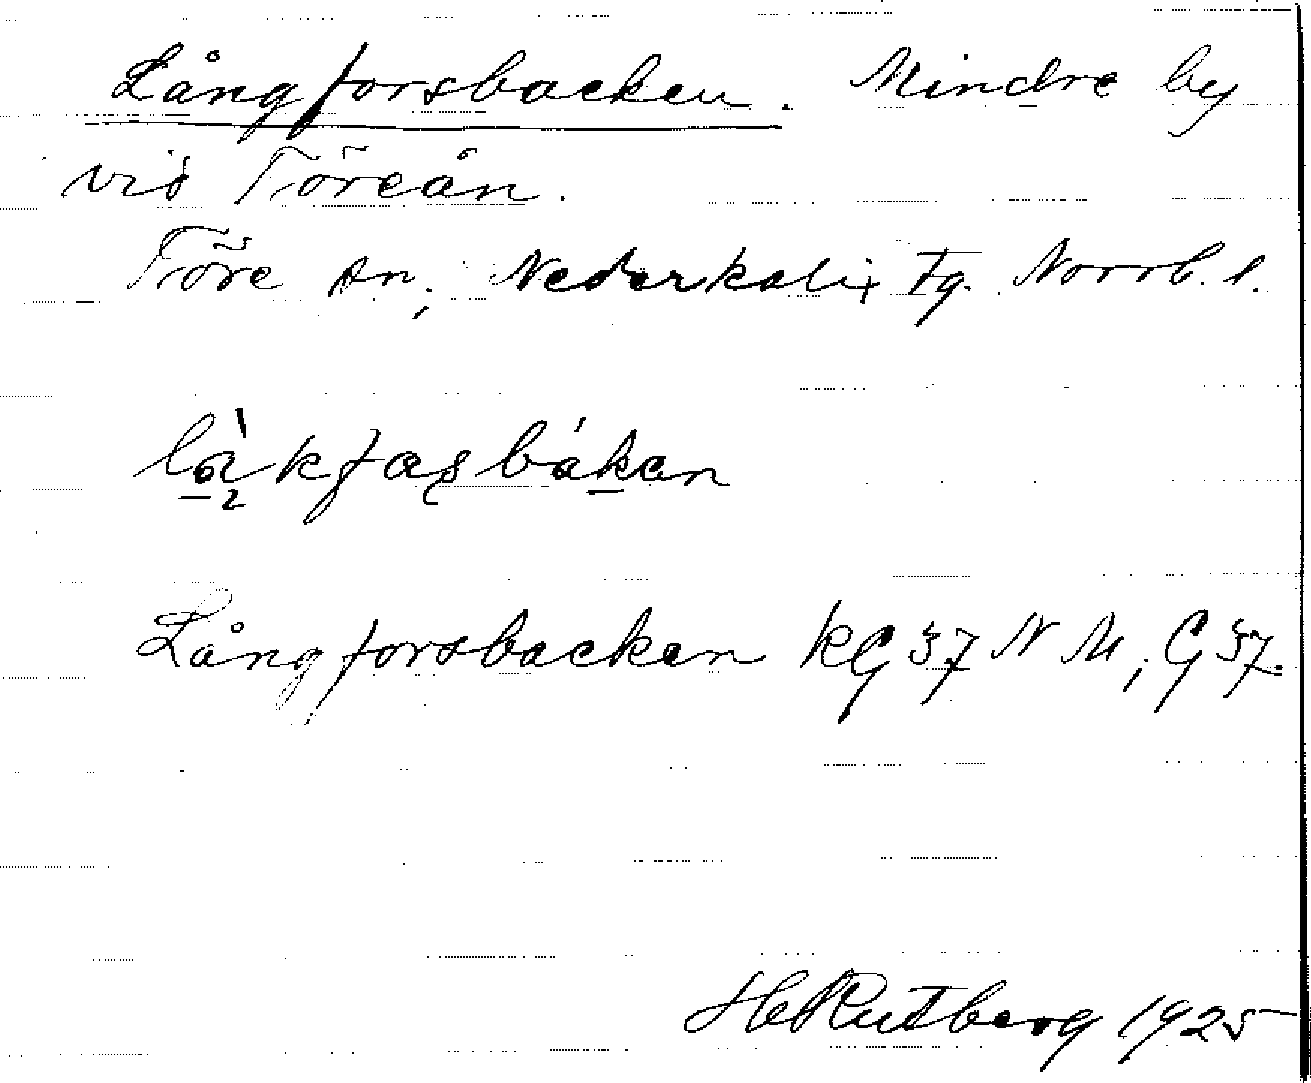 Långforsbacken. Mindre by
vid Töreån.
Töre sn, Nederkalix tg. Norrb. l.
Långforsbacken KG 57 N M, G 57.
H Rutberg 1925